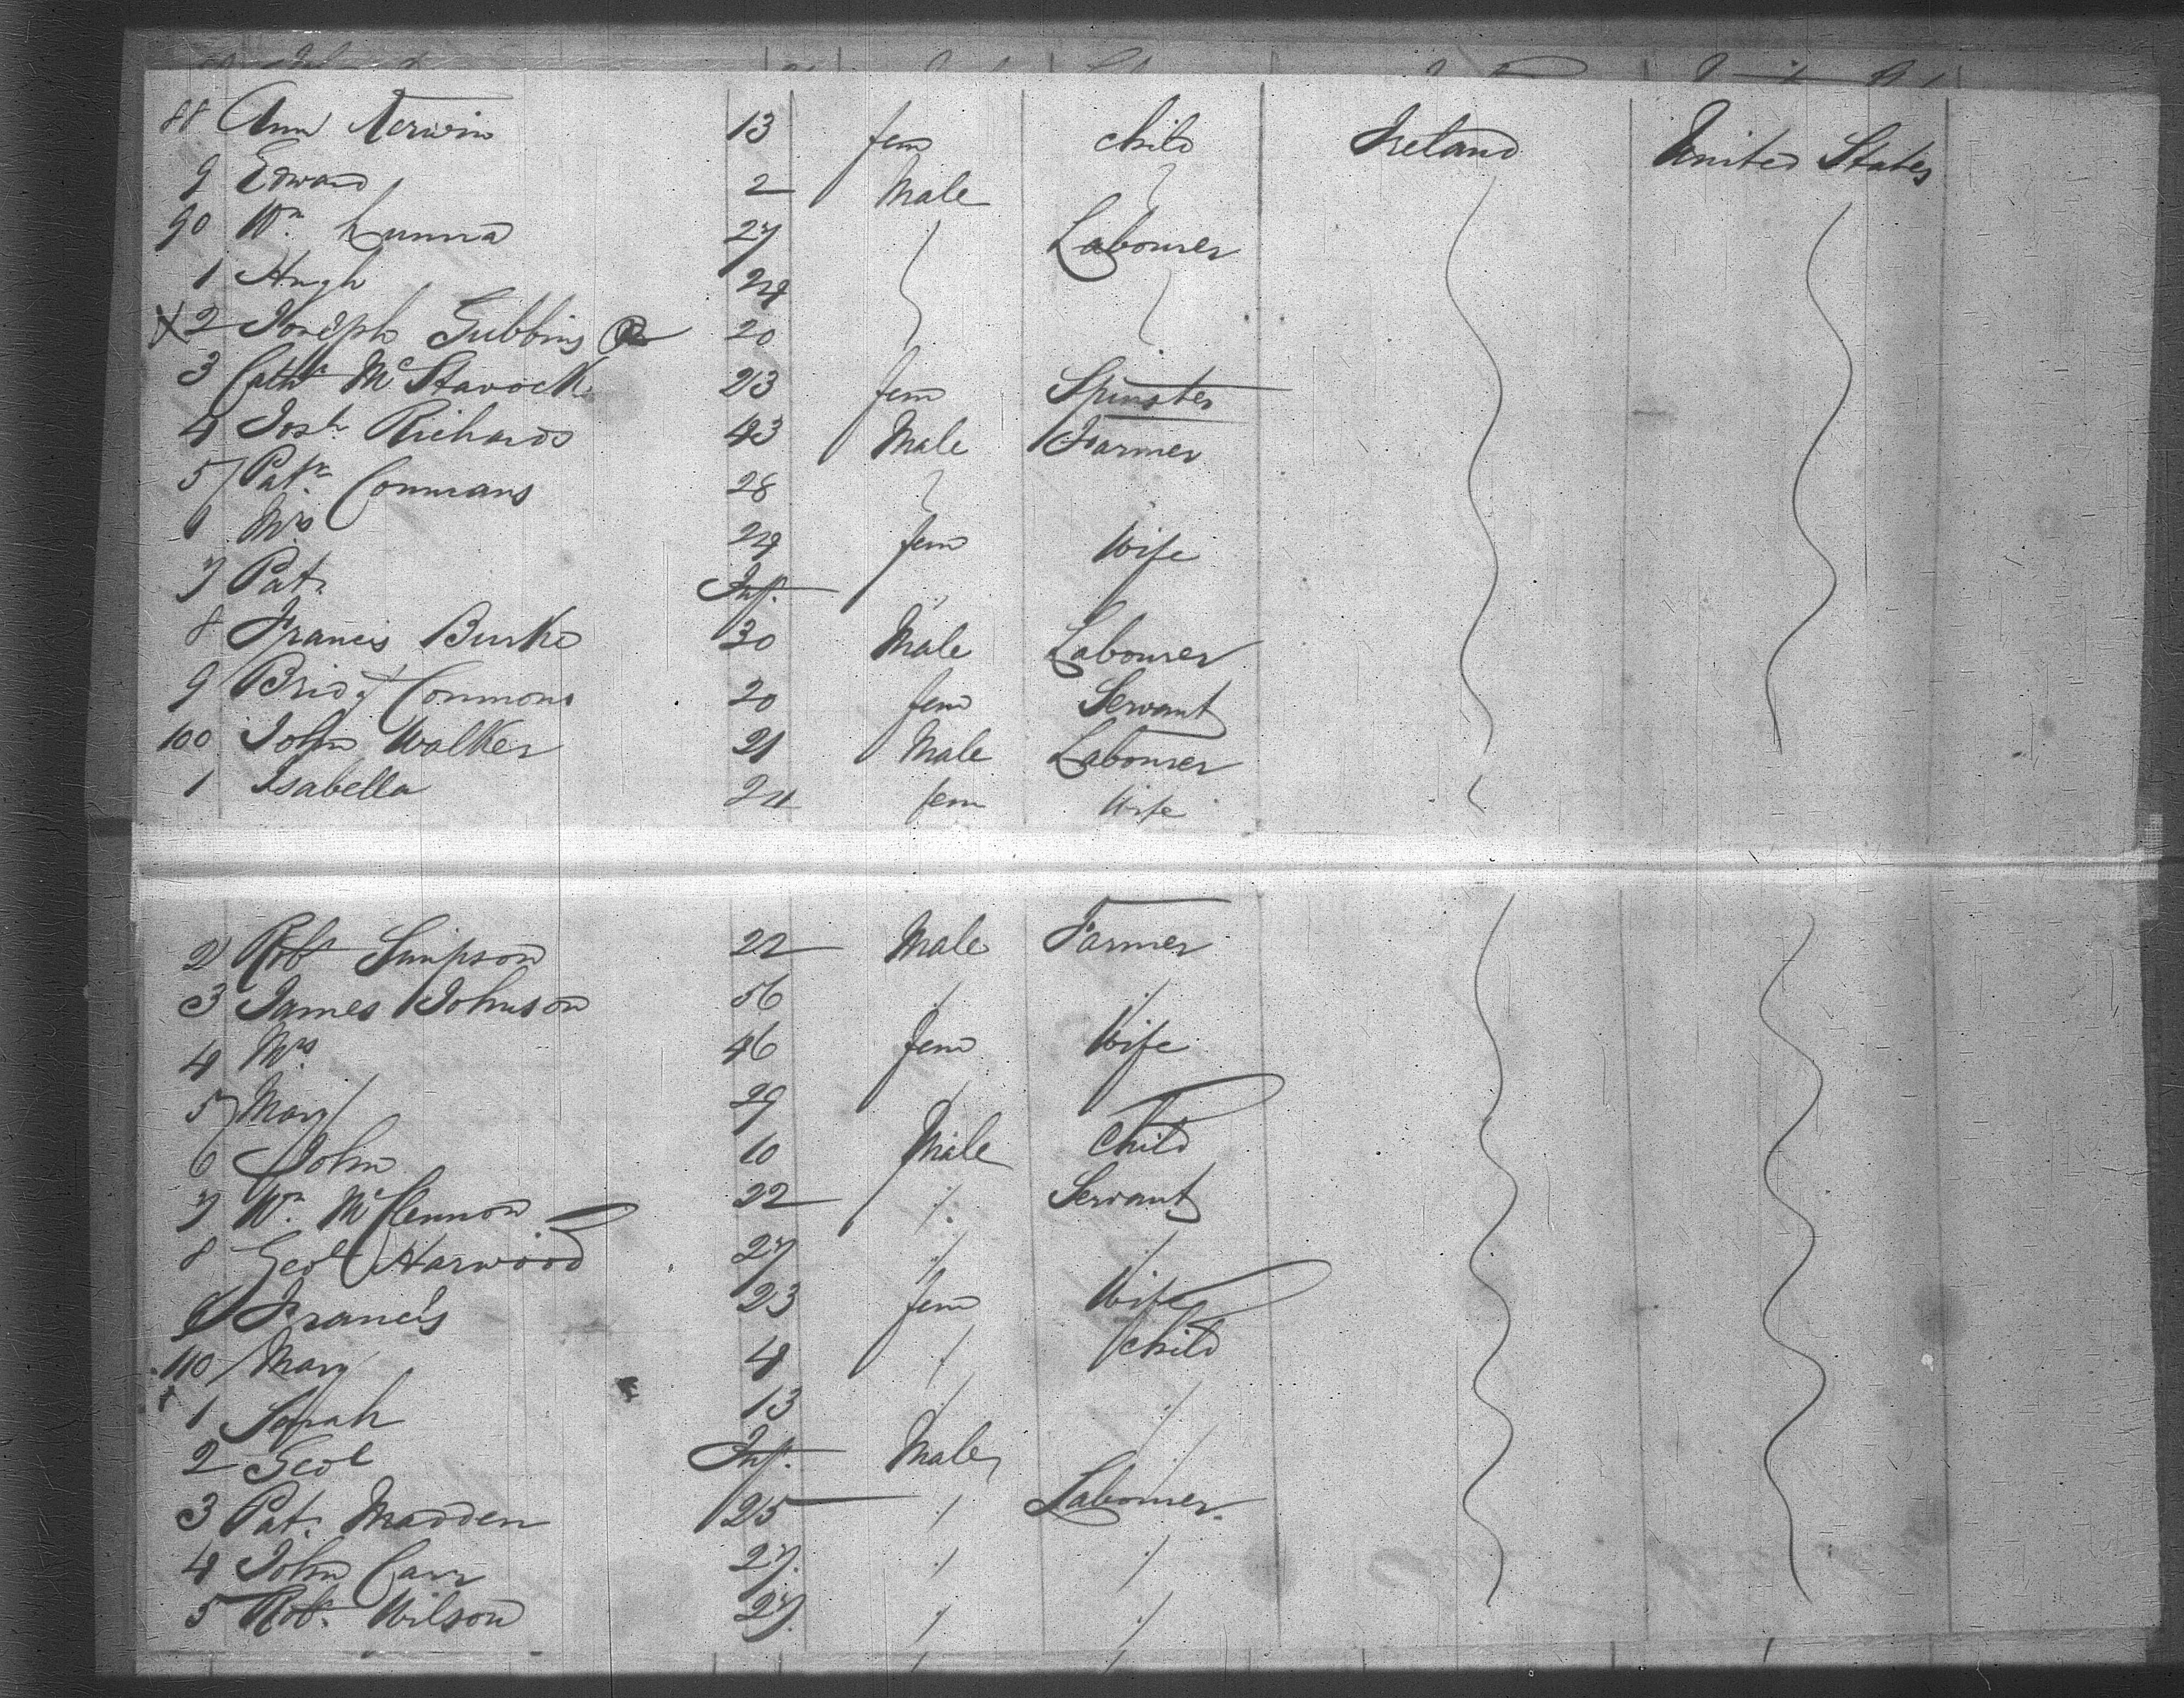 88 Ann Kerwin 13 fem child Ireland United States
9 Edward 2 Male
90 Wm Lunna 27 Labourer
1 Hugh 24
X2 Joseph Gubbins 20
3 Cathe McStavock 23 fem Spinster
4 Josh Richards 43 Male Farmer
5 Patk Commans 28
6 Mrs 24 fem Wife
7 Pat. Inf.
8 Francis Burke 30 Male Labourer
9 Bridgt Commons 20 fem Servant
100 John Walker 21 Male Labourer
1 Isabella 24 fem Wife
2 Robt Simpson 22 Male Farmer
3 James Johnson 56
4 Mrs 46 fem Wife
5 Mary 29
6 John 10 Male Child
7 Wm McClennon 22 Servant
8 Geoe Harwood 27
9 Francis 23 fem Wife
110 Mary 4 child
1 Sarah 13
2 Geoe Inf. Male
3 Pat. Madden 25 Labourer
4 John Carr 27
5 Robt. Wilson 27